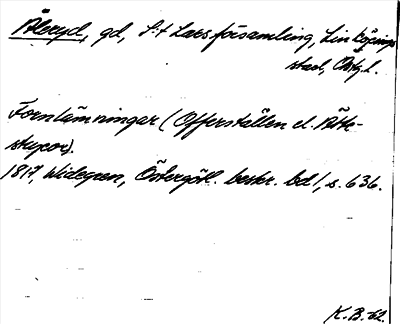 Åleryd, gd, S:t Lars församling, Linköpings
stad, Östgl.
Fornlämningar (Offerställen el. Ätte-
stupor).
1817, Widegren, Östergötl. beskr. bd 1, s. 636.
K.B. -62.